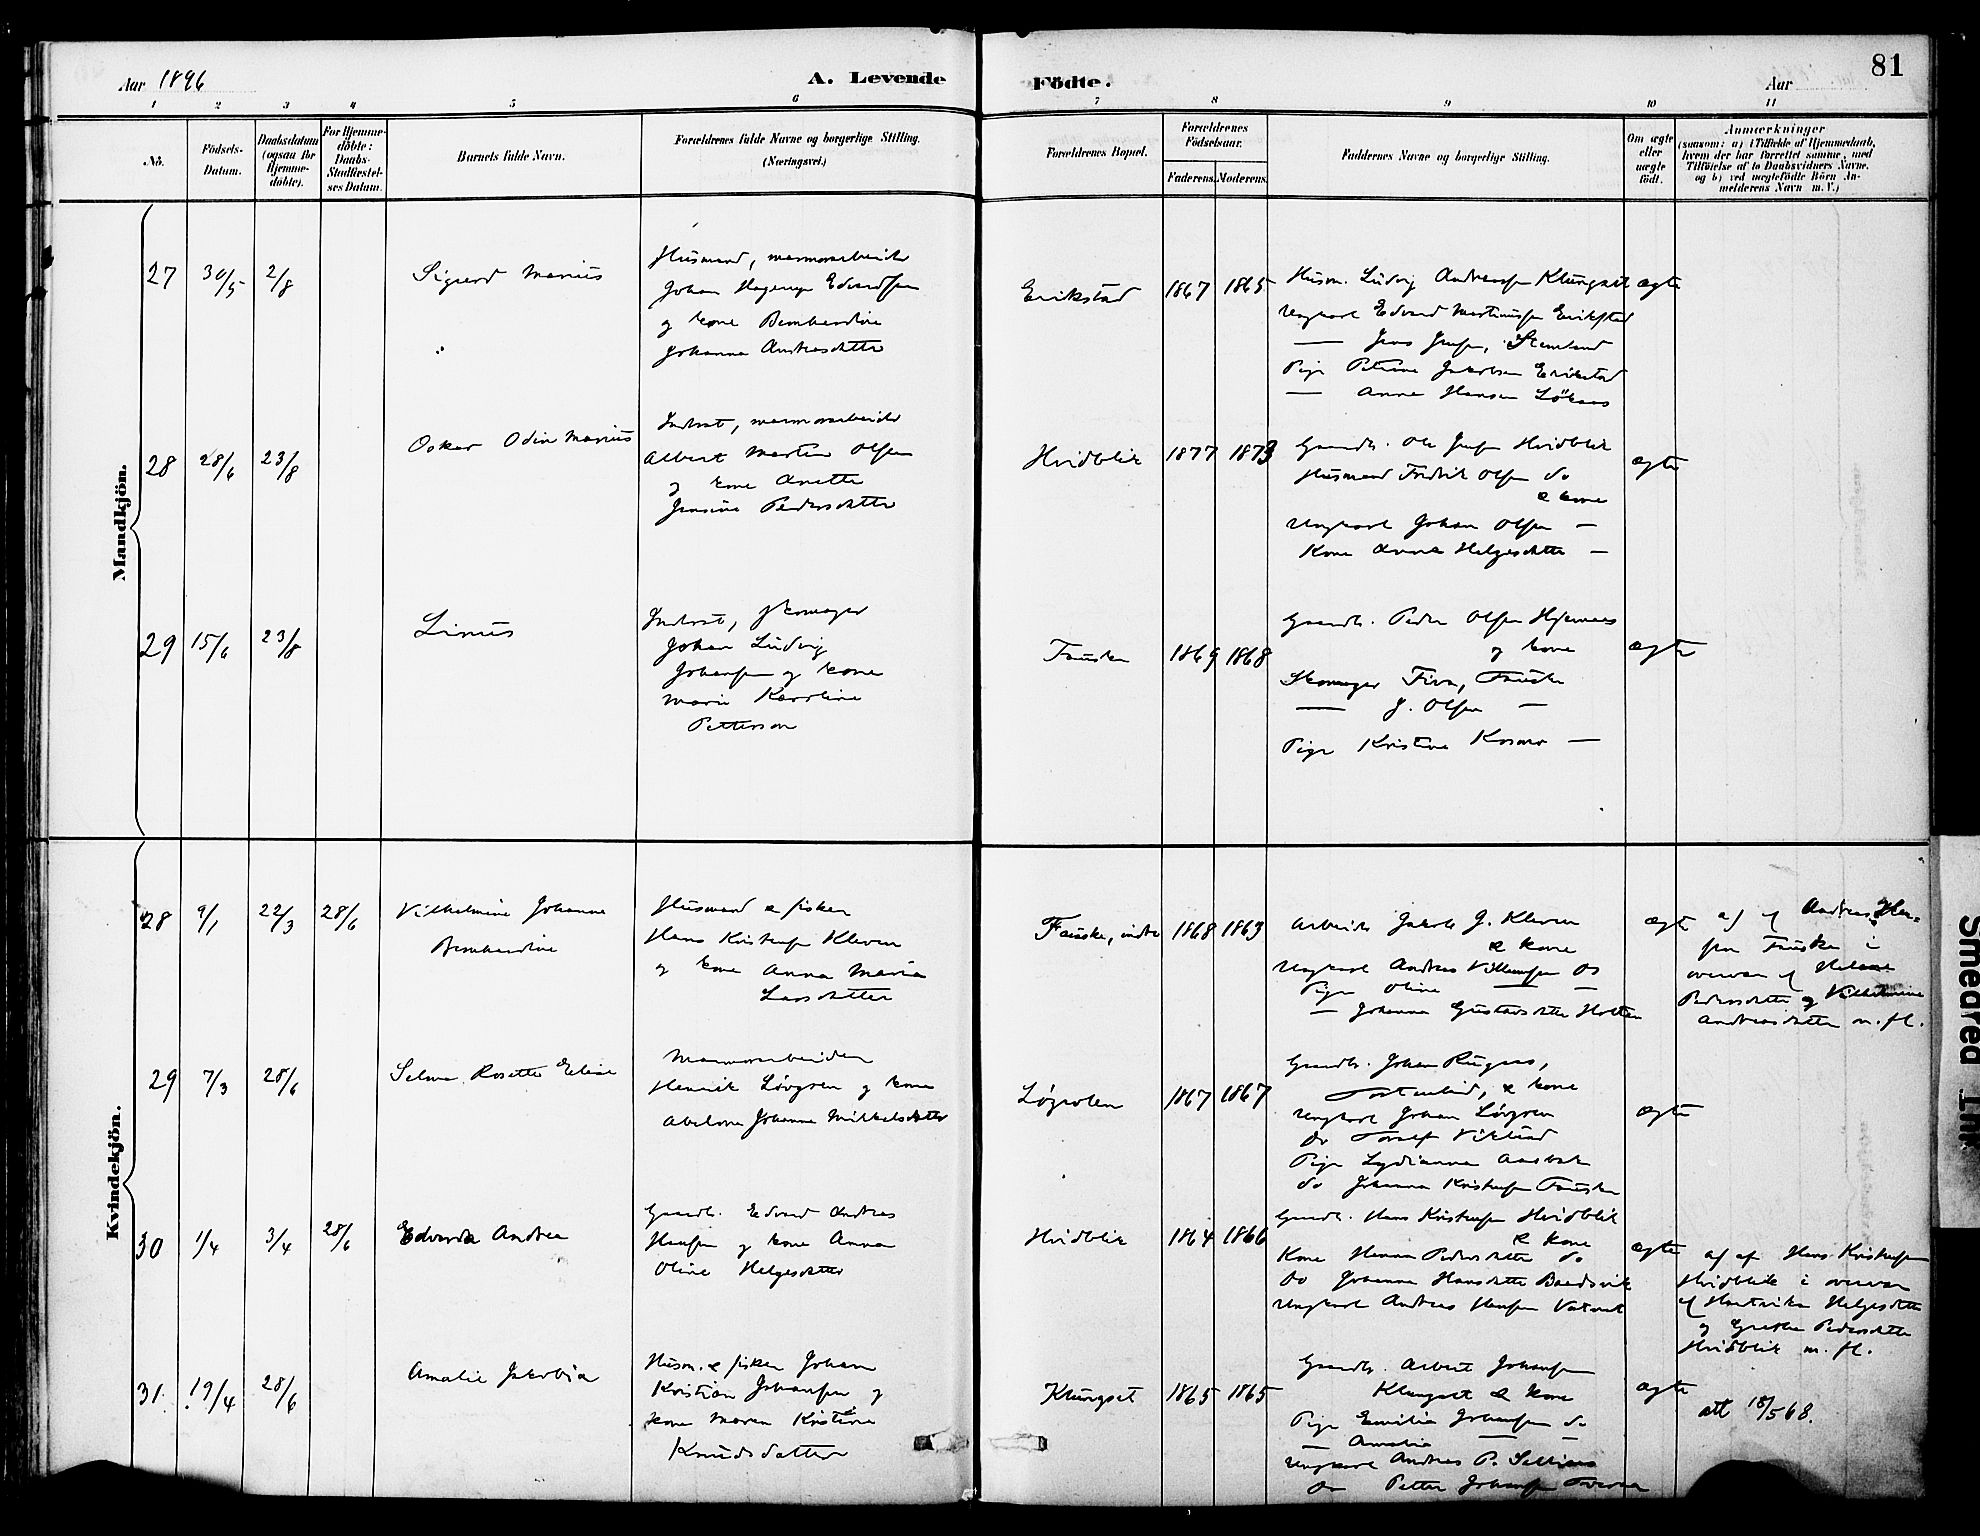 81
Aar 1896
A. Levende
Födte.
Aar
1 2 3 4 5 6 7 8 9 10 11
No.
Födsels-
Datum.
Daabsdatum
(ogsaa for
Hjemme-
döbte).
For Hjemme-
döbte:
Daabs-
Stadfæstel-
ses Datum.
Barnets fulde Navn.
Forældrenes fulde Navne og borgerlige Stilling.
(Næringsvei.)
Forældrenes Bopæl.
Forældrenes
Födselsaar.
Faderens. Moderens.
Faddernes Navne og borgerlige Stilling.
Om ægte
eller
uægte
födt.
Anmærkninger
(saasom: a) i Tilfælde af Hjemmedaab,
hvem der har forrettet samme, med
Tilföielse af to Daabsvidners Navne.
og b) ved uægtefödte Börn An-
melderens Navn m. V.)
Mandkjön.
27 30/5 2/8
Sigurd Marius
Husmand, marmorarbeider
Johan Hagerup Edvardsen
og kone Bernhardine
Johanna Andreasdatter
Erikstad
1867 1865
Husm. Ludvig Andreassen Klungset
Ungkarl Edvard Martinussen Erikstad
— Jens Jensen,
Pige Petrine Jakobsen Erikstad
— Anna Hansen Løkaas
ægte
28 28/6 23/8
Oskar Odin Marius
Inderst, marmorarbeider
Albert Martin Olsen
og kone Anette
Jensine Pedersdatter
Hvidblik
1877 1873
Gaardb. Ole Jensen Hvidblik
Husmand Fredrik Olsen do
& kone
Ungkarl Johan Olsen —
Kone Anna Helgesdatter —
ægte
29 15/6 23/8
Linus
Inderst, skomager
Johan Ludvig
Johansen og kone
Marie Karoline
Petterson
Fauske
1869 1868
Gaardb. Peder Olsen Hjemaas
og kone
Skomager Five, Fauske
— J. Olsen —
Pige Kristine Kosmo —
ægte
Kvindekjön.
28 9/1 22/3 28/6
Vilhelmine Johanne
Bernhardine
Husmand & fisker
Hans Kristensen Kleven
og kone Anna Maria
Larsdatter
Fauske, indre
1868 1863
Arbeider Jakob J. Kleven
& kone
Ungkarl Andreas Villumsen do
Pige Oline — —
— Johanna Gustavsdatter Holten
ægte
af Andreas
Fauske i
overvær af
Pedersdatter og Vilhelmine
Andreasdatter m. fl.
29 7/3 28/6
Selma Rosette Elise
Marmorarbeider
Henrik Løvgren og kone
Abelone Johanna Mikkelsdatter
Løgavlen
1867 1867
Gaardb. Johan Rugaas,
& kone
Ungkarl Johan Løvgren
do Toralf Viklund
Pige Lydianna Aasbak
do Johanna Kristensen Fauske
ægte
30 1/4 3/4 28/6
Edvarda Andrea
Gaardb. Edvard Andreas
Hansen og kone Anna
Oline Helgesdatter
Hvidblik
1864 1866
Gaardb. Hans Kristensen Hvidblik
& kone
Kone Hanna Pedersdatter do
Do Johanna Hansdatter Baadsvik
Ungkarl Andreas Hansen Vatnet
ægte
af Hans Kristensen
Hvidblik i overvær
af Hartvika Helgesdatter
og Grethe Pedersdatter
Hvidblik m. fl.
31. 19/4 28/6
Amalie Jakobia
Husm. & fisker Johan
Kristian Johansen og
kone Maren Kristine
Knudsdatter
Klungset
1865 1865
Gaardb. Albert Johansen
Klungset & kone
Pige Emilie Johansen do
— Amalia — —
Ungkarl Andreas P.
do Petter Johansen
ægte
att 18/5 68.
Smeared Ink